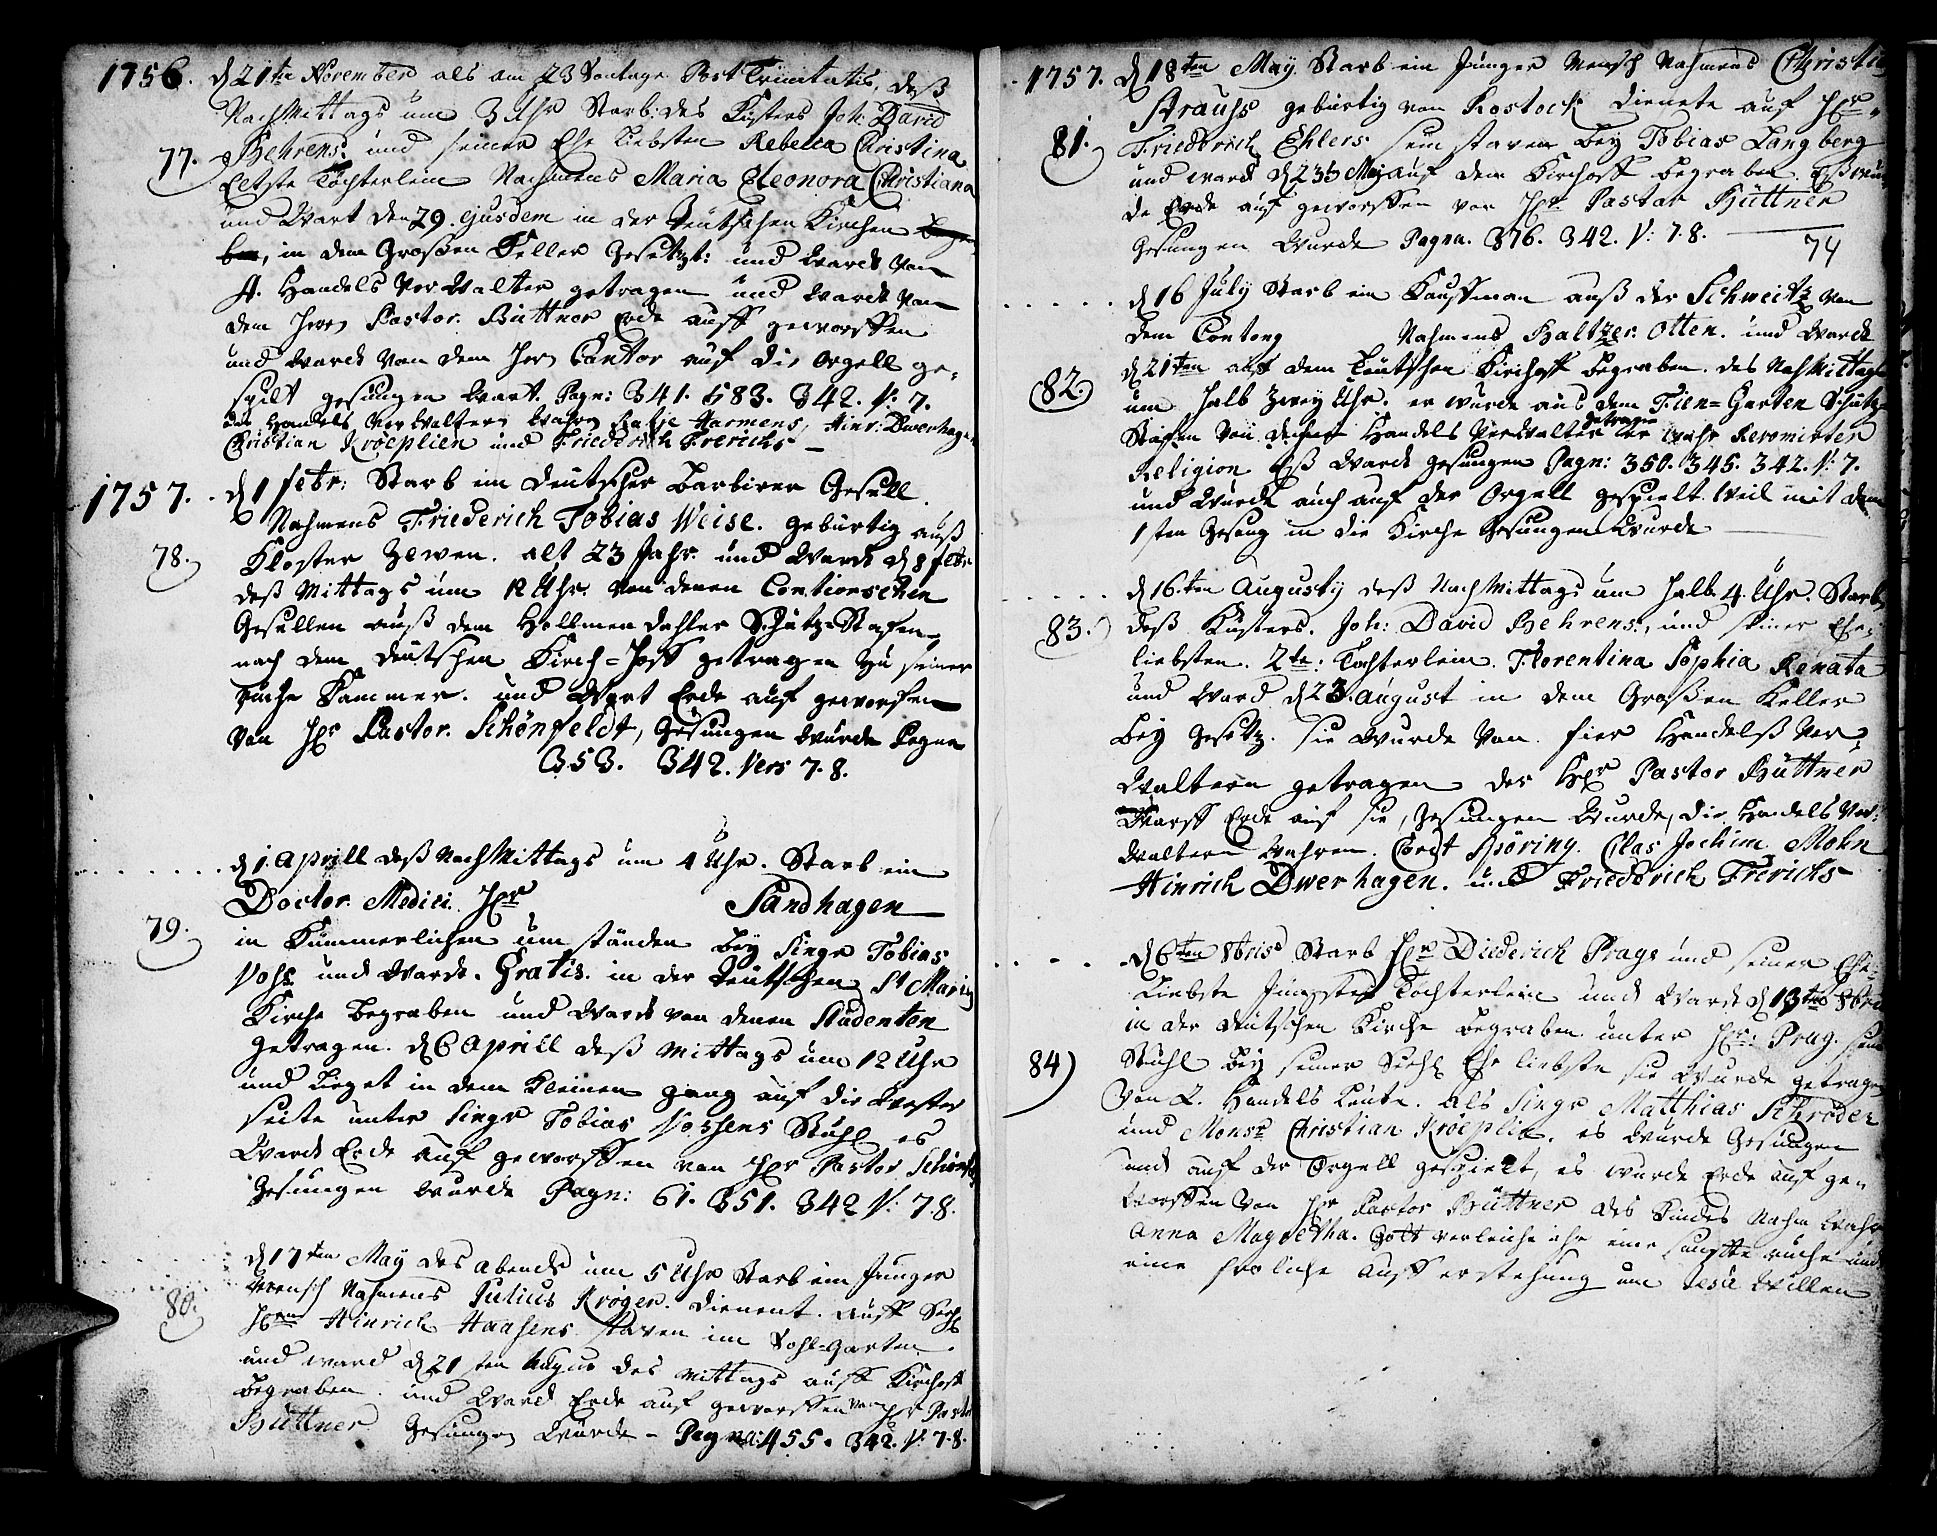 1756. d 21ten November als am 23 Sontage Post Trinitatis, deß
NachMittags um 3 Uhr Starb: des Küsters Joh: David
77. Behrens: und seiner Ehe Liebsten Rebecca Christina
Letzte Töchterlein Nahmens Maria Eleonora Christiana
und Wart den 29. ejusdem in der Teutschen Kirchen
in dem Großen Keller Gesetzt: und Wardt Von
4. Handels VerWalter getragen und Wardt Von
dem Herr Pastor. Büttner Erde auff geworffen
und Wardt Von dem Herr Cantor auf die Orgell ge-
spilt gesungen Wart. Pagn: 341. 583. 342. V: 7.
der Handels VerWalters Wahren Harmens, Hinr: Dwerhagen
Christian Kröeplien und Friederich Frerichs —
1757. d 1 febr: Starb ein Deutscher Barbierer Gesell
Nahmens Friederich Tobias Weise. gebürtig auß
78. Kloster Zewen. alt 23 Jahr. und Wardt d 8 febr
deß Mittags um 12 Uhr. Von denen Contiorschen
Gesellen auß dem Hollmen dahler Schütz=Stafen
nach dem Deutschen Kirch=Hoff getragen Zu seiner
Ruhe Kammer. und Wart Erde auf geworfen
Von Hr Pastor. Schönfeldt, Gesungen Wurde Pagna
353. 342. Vers 7. 8.
d 1. Aprill deß NachMittags um 4 Uhr. Starb ein
Doctor. Medici. Hr Sandhagen
79. in Kümmerlichen um ständen bey Singr Tobias
Vohs und Wardt. Gratis. in der Teutschen St Marien
Kirche begraben und Wardt von denen Studenten
getragen. d 6 Aprill deß Mittags um 12 Uhr
und lieget in dem Kleinen gang auf die Wester
seite unter Singr Tobias Vossens Stuhl es
Wardt Erde auf geworffen von Hr Pastor Schönfeldt
Gesungen Wurde Pagn: 61. 351. 342 V: 7.8.
d 17ten May des abends um 5 Uhr Starb ein Junger
Mensch Nahmens Julius Kröger. Dienent. auff Seel
80. Hinrich Haasens staven im Kohl=Garten.
und ward d 21sten des Mittags auff Kirchoff
begraben. und Ward Erde auf geworffen von Hr Pastor
Büttner Gesungen Wurde - Pagna: 455. 342. V: 7.8.
1757. d 18ten May Starb ein Junger Mensch Nahmens Christian
Strauss gebürtig von Rostock dienete auf Hr
81. Friederich Ehlers sein staven bey Tobias Langberg
und ward d 23t Maj auf dem Kirchoff begraben. Eß wur
de Erde auf geworffen von Hr Pastor Büttner
Gesungen Wurde Pagna. 376. 342. V: 7.8.
74
d 16 July Starb ein Kauffman auß der Schweitz Von
dem Contong Nahmens Baltzer Otten. und Wardt
82. d 21ten auf dem Teutschen Kirchoff begraben. des NachMittags
um halb Zwey Uhr. er wurde aus dem Fien=Garten Schütz
Stafen Von denen Handels VerWalter getragen er wahr Reformirter
Religion Eß Wardt gesungen Pagn: 350. 345. 342. V: 7.
und Wurde auch auf der Orgell gespielt Weil mit dem
1sten Gesang in die Kirche Gesungen Wurde
d 16.ten Augusty deß NachMittags um halb 4. Uhr. Starb
83. deß Küsters. Joh: David Behrens:, und seiner Ehe-
liebsten. 2te: Tochterlein. Florentina Sophia Renata
und Ward d 23. August in dem Großen Keller
bey Gesetz. sie Wurde Von fier Handelß Ver
Waltern getragen der Hr Pastor Büttner
Warff Erde auf sie, gesungen Wurde, die Handels Ver:
Waltern Wahren. Cordt Spöring. Clas Jochim Mohn
Hinrich Dwerhagen. und Friederich Frerichs
d 6ten 8bris Starb Hr Diederich Prage und seiner Ehe-
Liebste Jungstes Töchterlein und Wardt d 13ten 8bris
in der Deutschen Kirche begraben unter Hr: Prag. sein
84) Stuhl bey seiner Seehl Ehe liebste sie Wurde getragen
Von 2. Handels Leute. als Singr Matthias Schröder
und Monsr Christian Kröeplin. es Wurde Gesungen
und auf der Orgell gespielt, es wurde Erde auf ge
Worffen Von Hr Pastor Büttner des Kindes Nahm Wahr
Anna Magretha. Gott verleihe ihr eine sanffte ruhe und
eine fröliche Auff erstehung um Jesu Willen